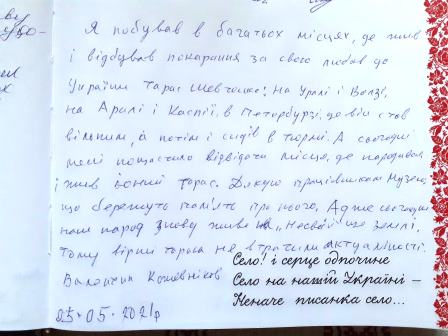 Я побував в багатьох місцях, де жив
і відбував покарання за свою любов до
України Тарас Шевченко: на Уралі і Волзі,
на Аралі і Каспії, в Петербурзі, де він став
вільним, а потім і сидів в тюрмі. А сьогодні
мені пощастило відвідати місця, де народився
і жив юний Тарас. Дякую працівникам Музею,
що бережуть пам'ять про нього. Адже сьогодні
наш народ знову живе на „Не своїй" землі.
Тому вірші Тараса не втратили актуальності.
Валентин Кожевніков
25.05.2021р
Село! і серце одпочине
Село на нашій Україні –
Неначе писанка село...